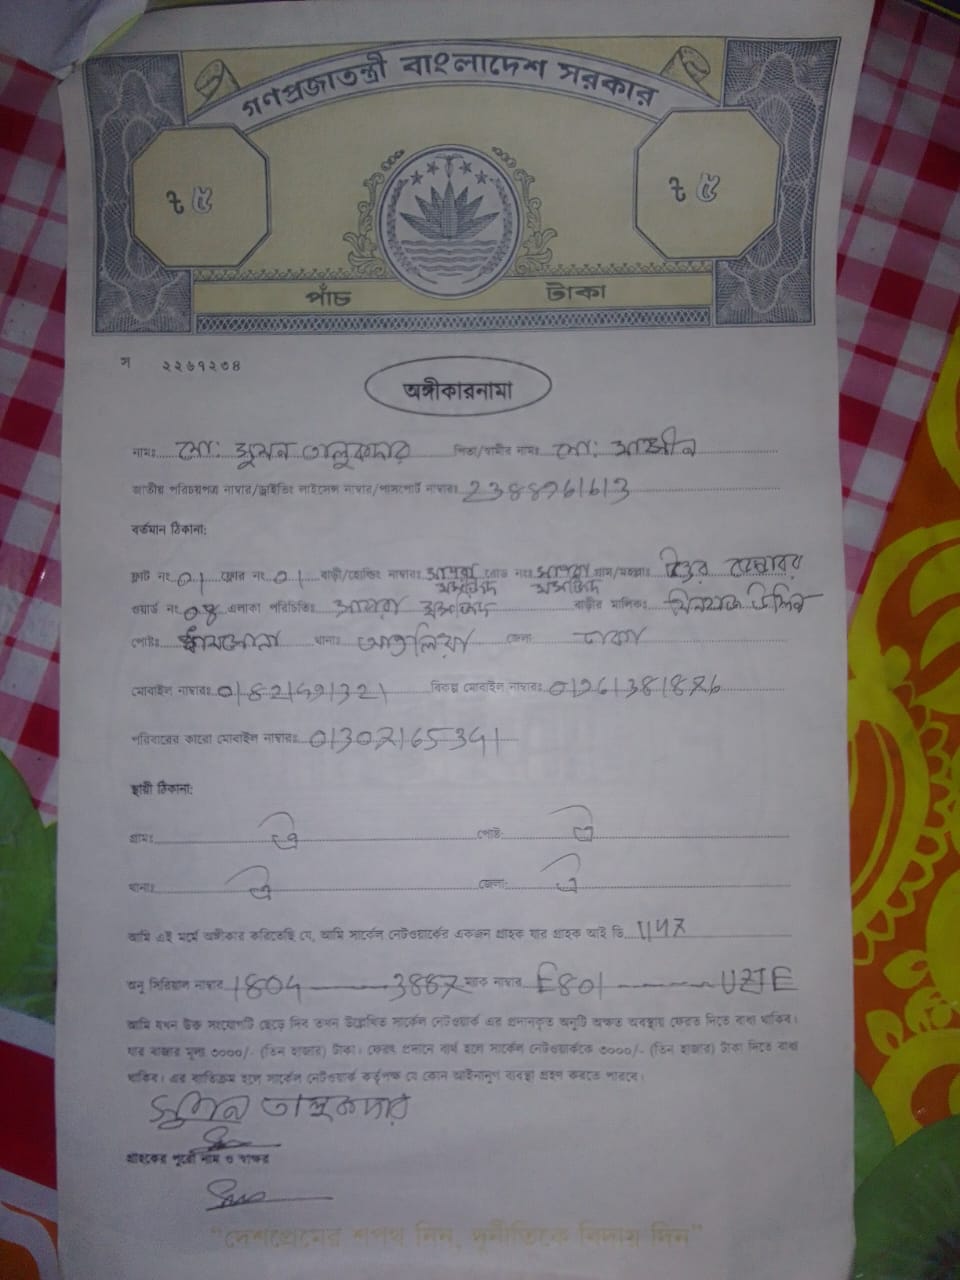 গণপ্রজাতন্ত্রী বাংলাদেশ সরকার
৳ ৫ ৳ ৫
পাঁচ টাকা
স ২২৬১২৩৪
অঙ্গীকারনামা
নামঃ মো: সুমন তালুকদার পিতা/স্বামীর নামঃ মো:
জাতীয় পরিচয়পত্র নাম্বার/ড্রাইভিং লাইসেন্স নাম্বার/পাসপোর্ট নাম্বারঃ
বর্তমান ঠিকানা:
ফ্লাট নং 01 ফ্লোর নং 01 বাড়ী/হোল্ডিং নাম্বারঃ রোড নংঃ গ্রাম/মহল্লাঃ
মসজিদ মসজিদ
ওয়ার্ড নং 08 এলাকা পরিচিতিঃ মসজিদ বাড়ীর মালিকঃ
পোষ্টঃ থানাঃ আশুলিয়া জেলা ঢাকা
মোবাইল নাম্বারঃ বিকল্প মোবাইল নাম্বারঃ
পরিবারের কারো মোবাইল নাম্বারঃ
স্থায়ী ঠিকানা:
গ্রামঃ ঐ পোষ্ট: ঐ
থানাঃ ঐ জেলা: ঐ
আমি এই মর্মে অঙ্গীকার করিতেছি যে, আমি সার্কেল নেটওয়ার্কের একজন গ্রাহক যার গ্রাহক আই ডি
অনু সিরিয়াল নাম্বার 1804 ম্যাক নাম্বার E801
আমি যখন উক্ত সংযোগটি ছেড়ে দিব তখন উল্লেখিত সার্কেল নেটওয়ার্ক এর প্রদানকৃত অনুটি অক্ষত অবস্থায় ফেরত দিতে বাধ্য থাকিব।
যার বাজার মূল্য ৩০০০/- (তিন হাজার) টাকা। ফেরৎ প্রদানে ব্যর্থ হলে সার্কেল নেটওয়ার্ককে ৩০০০/- (তিন হাজার) টাকা দিতে বাধ্য
থাকিব। এর ব্যতিক্রম হলে সার্কেল নেটওয়ার্ক কর্তৃপক্ষ যে কোন আইনানুগ ব্যবস্থা গ্রহণ করতে পারবে।
সুমন তালুকদার
গ্রাহকের পুরো নাম ও স্বাক্ষর
"দেশপ্রেমের শপথ নিন, দুর্নীতিকে বিদায় দিন"